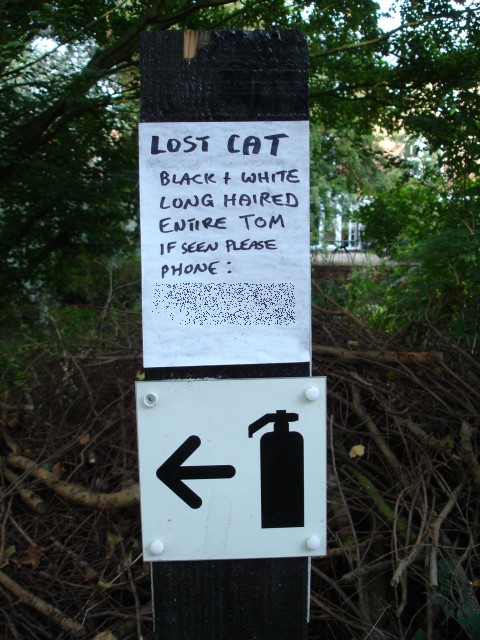 LOST CAT
BLACK + WHITE
LONG HAIRED
ENTIRE TOM
IF SEEN PLEASE
PHONE: